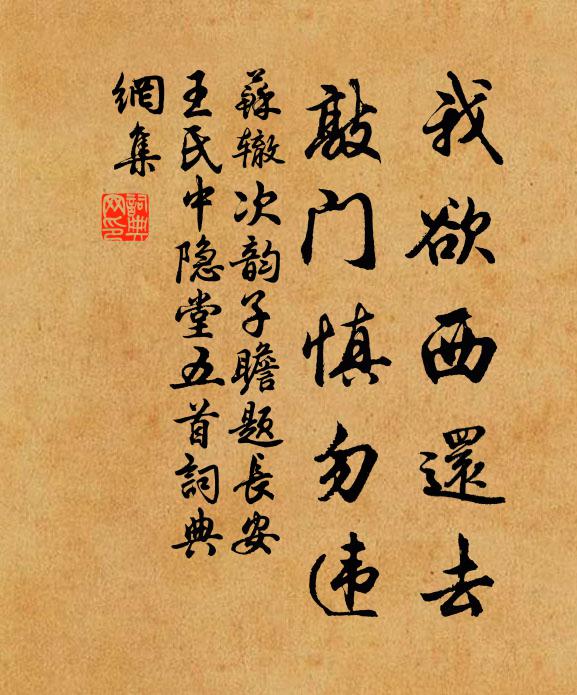 我欲西還去
敲门慎勿违
蘇辙次韵子瞻題長安
王氏中隐堂五首詞典
網集
詞典
网印